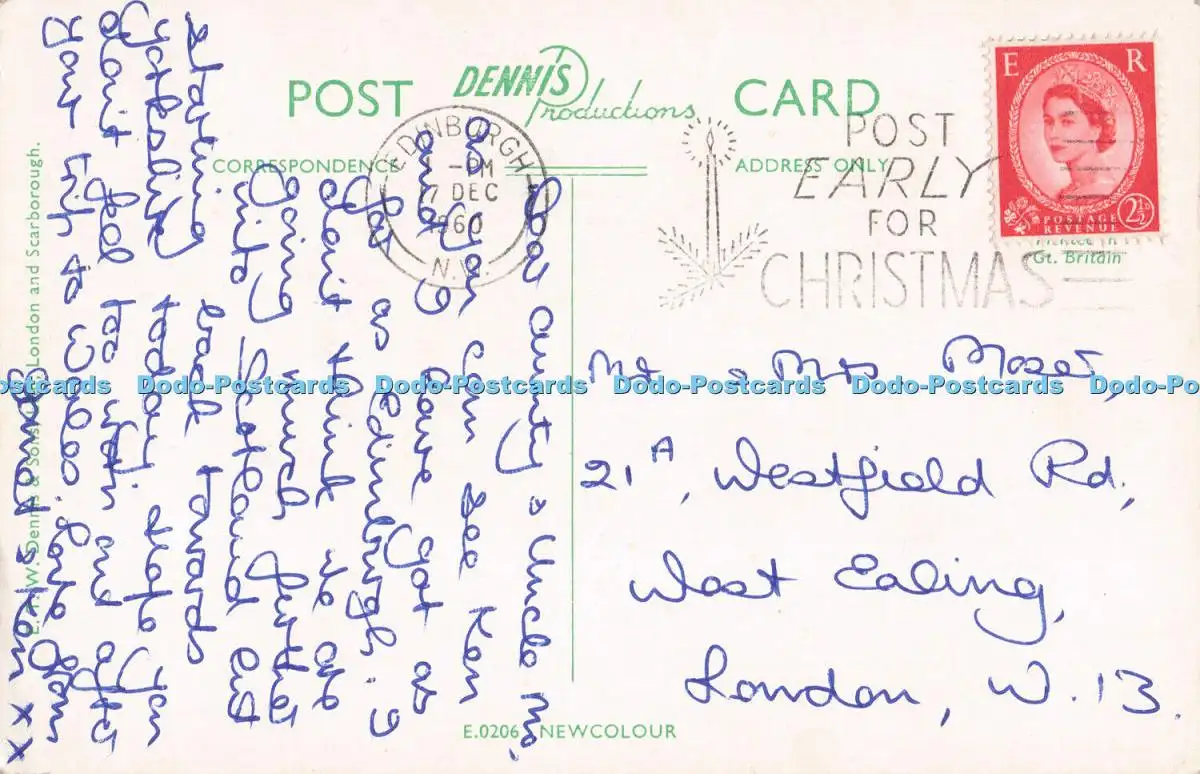 POST DENNIS Productions CARD
CORRESPONDENCE ADDRESS ONLY
EDINBURGH
-PM
7 DEC
1960
POST
EARLY
FOR
CHRISTMAS
E R
POSTAGE
REVENUE
2½D
Gt. Britain
Dear Aunty & Uncle Mo,
As you can see Ken
and I have got as
far as Edinburgh. I
don't think we are
going much further
into Scotland but
back towards
today
starting
yotholiday
don't feel too
your trip to Wales. Love from
& Ken x x
Mr & Mrs Moser,
21A, Westfield Rd,
West Ealing,
London, W.13.
E.T.W. Dennis & Sons London and Scarborough.
E.0206 NEWCOLOUR
Dodo-Postcards Dodo-Postcards Dodo-Postcards Dodo-Postcards Dodo-Postcards